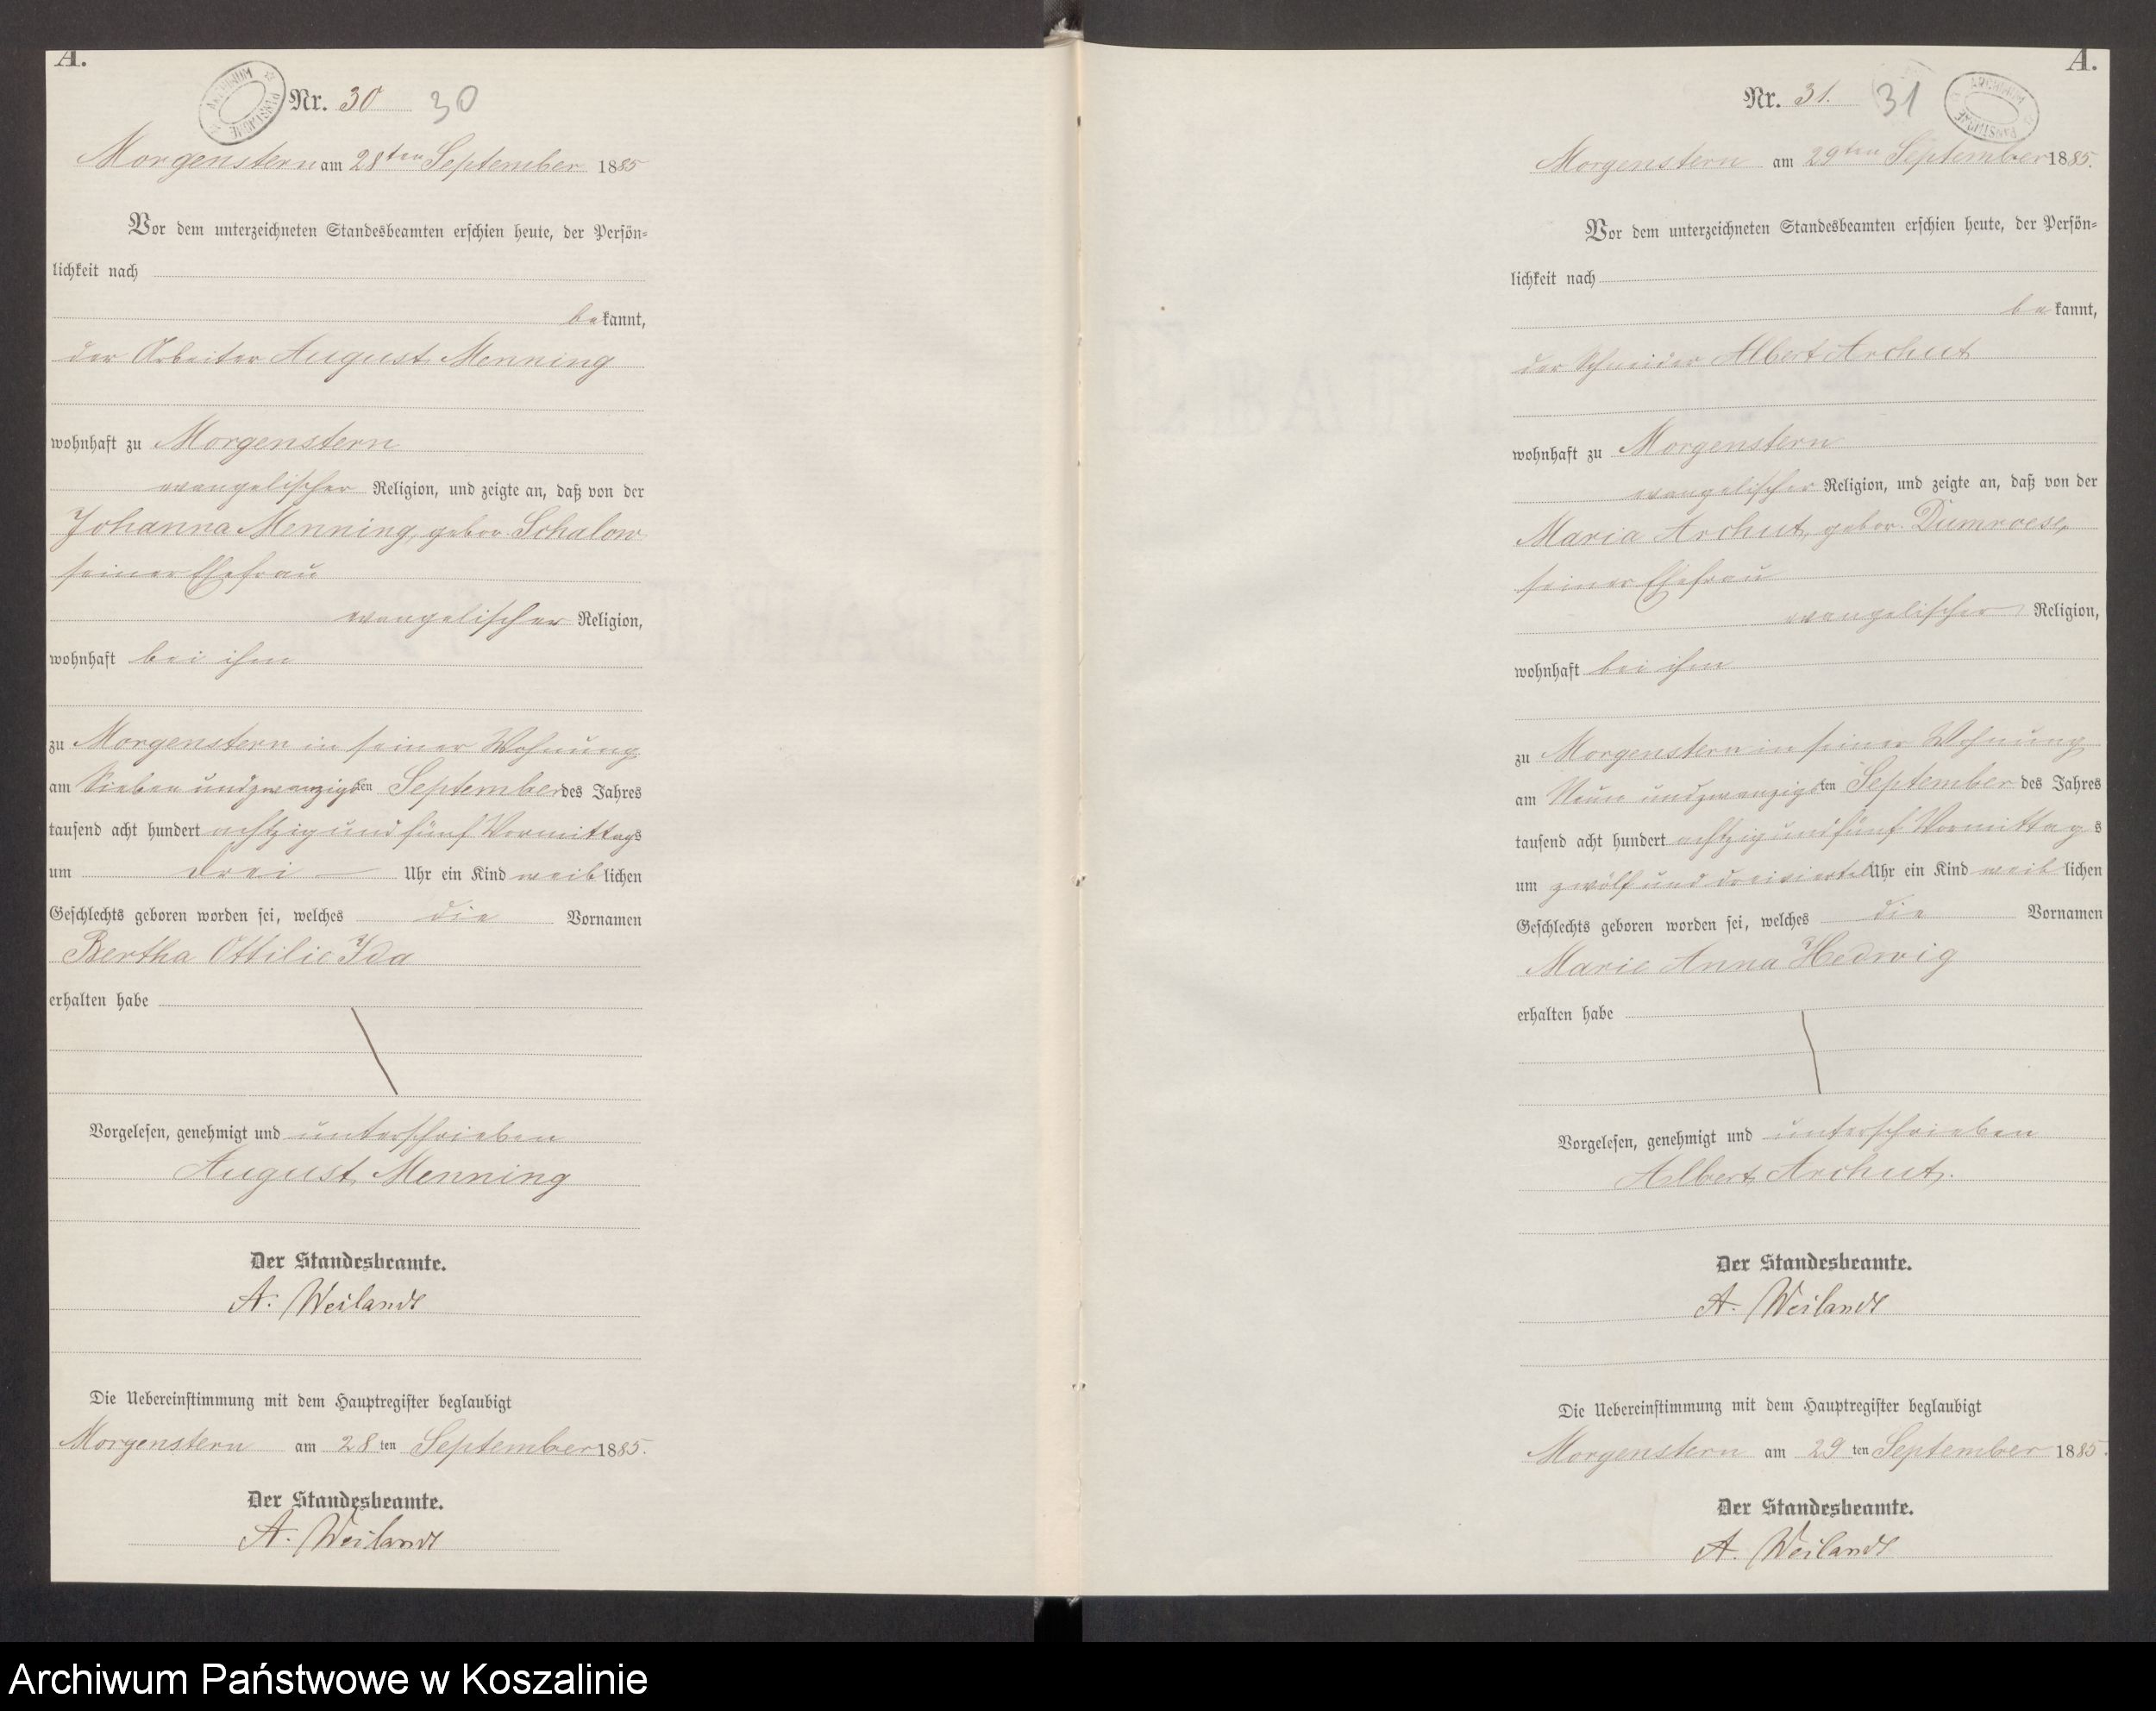 A.
Nr. 30 30
Morgenstern am 28ten September 1885
Vor dem unterzeichneten Standesbeamten erschien heute, der Persön-
lichkeit nach
bekannt,
der Arbeiter August Menning
wohnhaft zu Morgenstern
evangelischer Religion, und zeigte an, daß von der
Johanna Menning, gebor. Schalow
seiner Ehefrau
evangelischer Religion,
wohnhaft bei ihm
zu Morgenstern in seiner Wohnung
am Sieben und zwanzigsten September des Jahres
tausend acht hundert achtzig und fünf Vormittags
um drei — Uhr ein Kind weiblichen
Geschlechts geboren worden sei, welches die Vornamen
Bertha Ottilie Ida
erhalten habe
Vorgelesen, genehmigt und unterschrieben
August Menning
Der Standesbeamte.
A. Weilandt
Die Uebereinstimmung mit dem Hauptregister beglaubigt
Morgenstern am 28ten September 1885.
Der Standesbeamte.
A. Weilandt
A.
Nr. 31. 31
ARCHIWUM PAŃSTWOWE
Morgenstern am 29ten September 1885.
Vor dem unterzeichneten Standesbeamten erschien heute, der Persön-
lichkeit nach
bekannt,
der Schneider Albert Archut
wohnhaft zu Morgenstern
evangelischer Religion, und zeigte an, daß von der
Maria Archut, gebor. Dumroese,
seiner Ehefrau
evangelischer Religion,
wohnhaft bei ihm
zu Morgenstern in seiner Wohnung
am Neun und zwanzigsten September des Jahres
tausend acht hundert achtzig und fünf Vormittags
um zwölf und dreiviertel Uhr ein Kind weiblichen
Geschlechts geboren worden sei, welches die Vornamen
Marie Anna Hedwig
erhalten habe
Vorgelesen, genehmigt und unterschrieben
Albert Archut.
Der Standesbeamte.
A. Weilandt
Die Uebereinstimmung mit dem Hauptregister beglaubigt
Morgenstern am 29ten September 1885.
Der Standesbeamte.
A. Weilandt
Archiwum Państwowe w Koszalinie